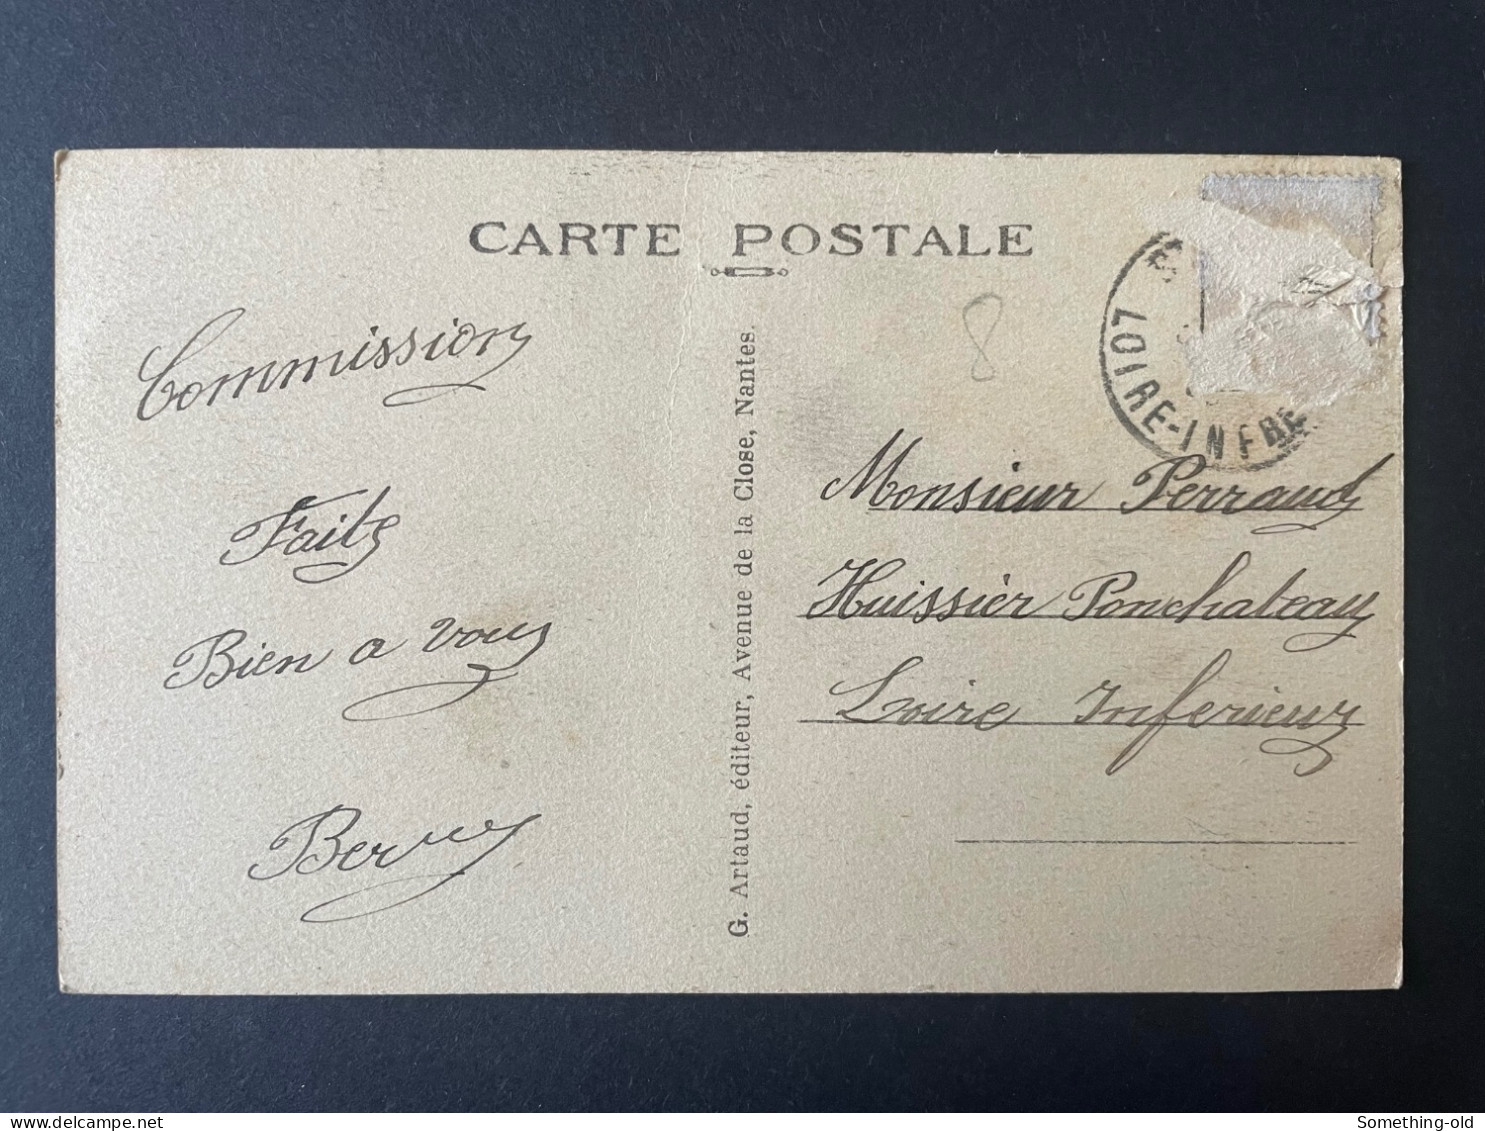 CARTE POSTALE
8
LOIRE-INFRE
Commission
Faite
Bien a vous
G. Artaud, éditeur, Avenue de la Close, Nantes.
Monsieur Perraud
Huissier Ponchateau
Loire Inferieur
delcampe.net
Something-old